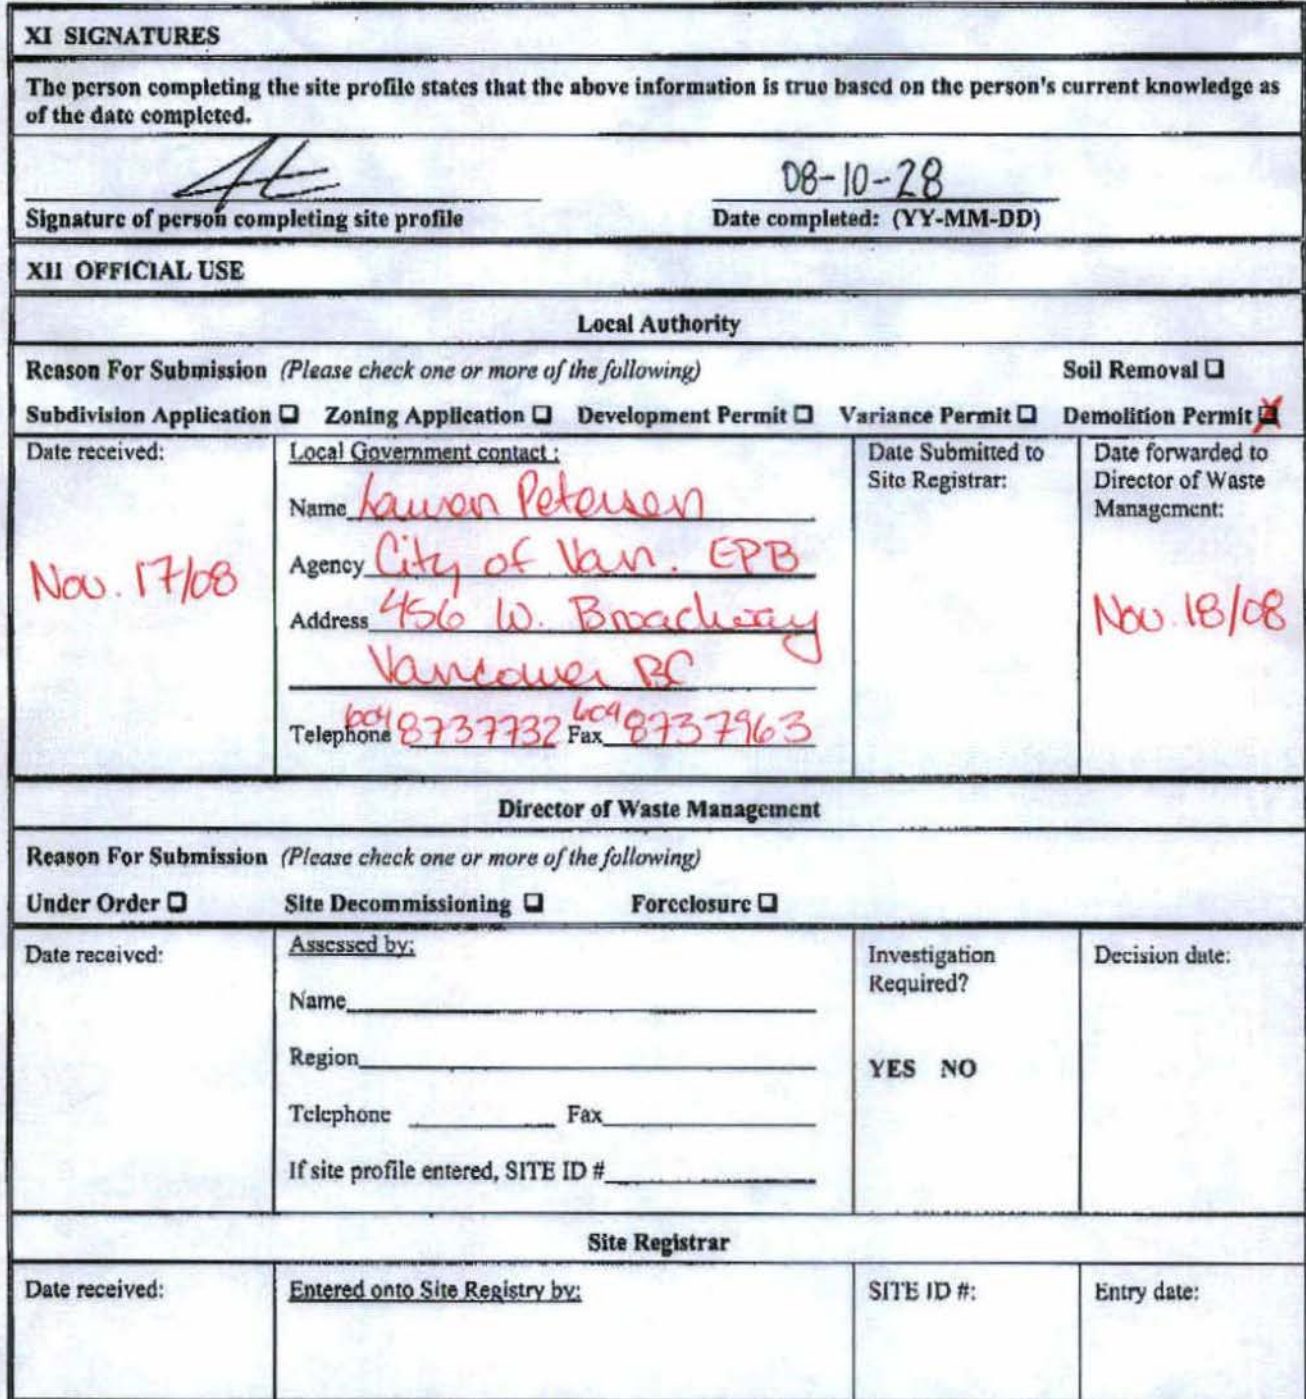 XI SIGNATURES
The person completing the site profile states that the above information is true based on the person's current knowledge as
of the date completed.
08-10-28
Signature of person completing site profile
Date completed: (YY-MM-DD)
XII OFFICIAL USE
Local Authority
Reason For Submission (Please check one or more of the following)
Soil Removal ☐
Subdivision Application ☐ Zoning Application ☐ Development Permit ☐ Variance Permit ☐ Demolition Permit ☒
Date received:
Nov. 17/08
Local Government contact :
Name Lauren Petersen
Agency City of Van. EPB
Address 456 W. Broadway
Vancouver BC
Telephone 604 8737732 Fax 604 8737963
Date Submitted to
Site Registrar:
Date forwarded to
Director of Waste
Management:
Nov. 18/08
Director of Waste Management
Reason For Submission (Please check one or more of the following)
Under Order ☐ Site Decommissioning ☐ Foreclosure ☐
Date received:
Assessed by:
Name
Region
Telephone Fax
If site profile entered, SITE ID #
Investigation
Required?
YES NO
Decision date:
Site Registrar
Date received:
Entered onto Site Registry by:
SITE ID #:
Entry date: